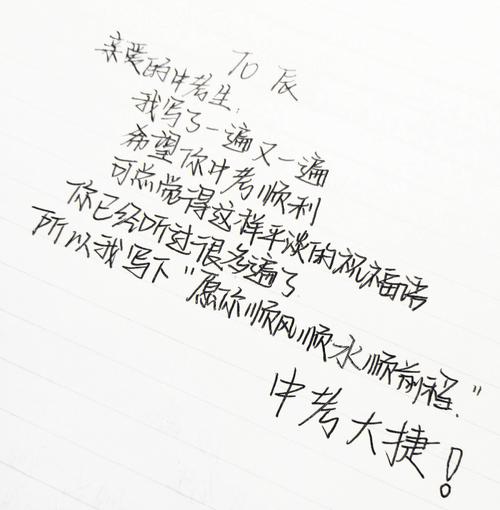 TO 辰
亲爱的中考生，
我写了一遍又一遍
希望你中考顺利
可总觉得这样平淡的祝福语
你已经听过很多遍了
所以我写下"愿你顺风顺水顺前程."
中考大捷！